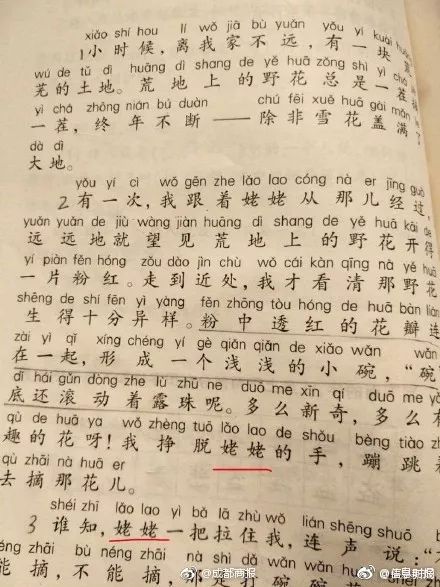 xiǎo shí hou lí wǒ jiā bù yuǎn yǒu yí kuài
1小时候，离我家不远，有一块
wú de tǔ dì huāng dì shang de yě huā zǒng shì yì chá
芜的土地。荒地上的野花总是一茬
yì chá zhōng nián bú duàn chú fēi xuě huā gài mǎn
一茬，终年不断——除非雪花盖满了
dà dì
大地。
yǒu yí cì wǒ gēn zhe lǎo lao cóng nà er jīng guò
2有一次，我跟着姥姥从那儿经过，
yuǎn yuǎn de jiù wàng jiàn huāng dì shang de yě huā kāi de
远远地就望见荒地上的野花开得
yí piàn fěn hóng zǒu dào jìn chù wǒ cái kàn qīng nà yě
一片粉红。走到近处，我才看清那野花
shēng de shí fēn yì yàng fěn zhōng tòu hóng de huā bàn lián
生得十分异样。粉中透红的花瓣连
zài yì qǐ xíng chéng yí gè qiǎn qiǎn de xiǎo wǎn wǎn
在一起，形成一个浅浅的小碗，“碗”
dǐ hái gǔn dòng zhe lù zhū ne duō me xīn qí duō me yǒu
底还滚动着露珠呢。多么新奇，多么有
qù de huā ya wǒ zhèng tuō lǎo lao de shǒu bèng tiào zhe
趣的花呀！我挣脱姥姥的手，蹦跳着
qù zhāi nà huā er
去摘那花儿。
shéi zhī lǎo lao yì bǎ lā zhù wǒ lián shēng shuō
3谁知，姥姥一把拉住我，连声说：“
zhāi bù néng zhāi nà shì dǎ wǎn wǎn
摘，不能摘，那
@成都商报
@信息时报